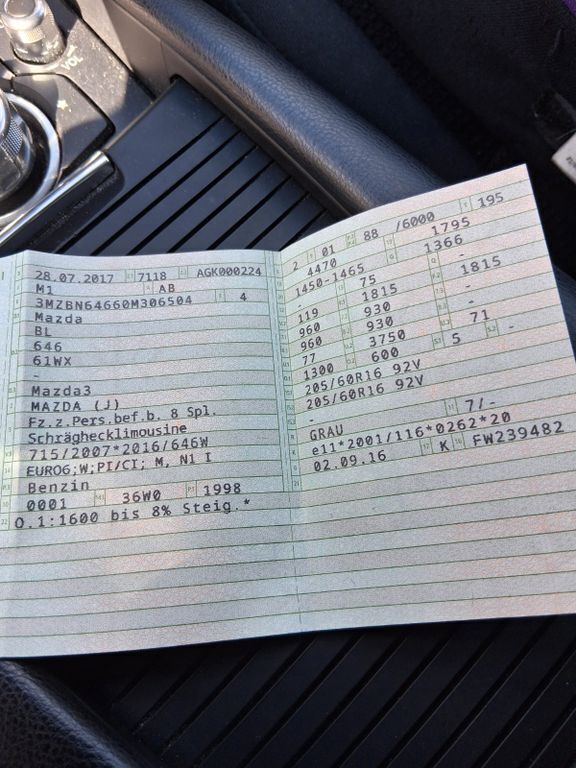 VOL
28.07.2017 7118 AGK000224
M1 AB
3MZBN64660M306504 4
Mazda
BL
646
61WX
-
Mazda3
MAZDA (J)
Fz.z.Pers.bef.b. 8 Spl.
Schräghecklimousine
715/2007*2016/646W
EURO6;W;PI/CI; M, N1 I
Benzin
0001 36W0 1998
O.1:1600 bis 8% Steig.*
2 01 88 /6000 195
4470 1795
1450-1465 1366
119 75 -
960 1815 1815
960 930 -
77 930 -
1300 3750 71
205/60R16 92V 600 5 -
205/60R16 92V
-
GRAU 7/-
e11*2001/116*0262*20
02.09.16 K FW239482